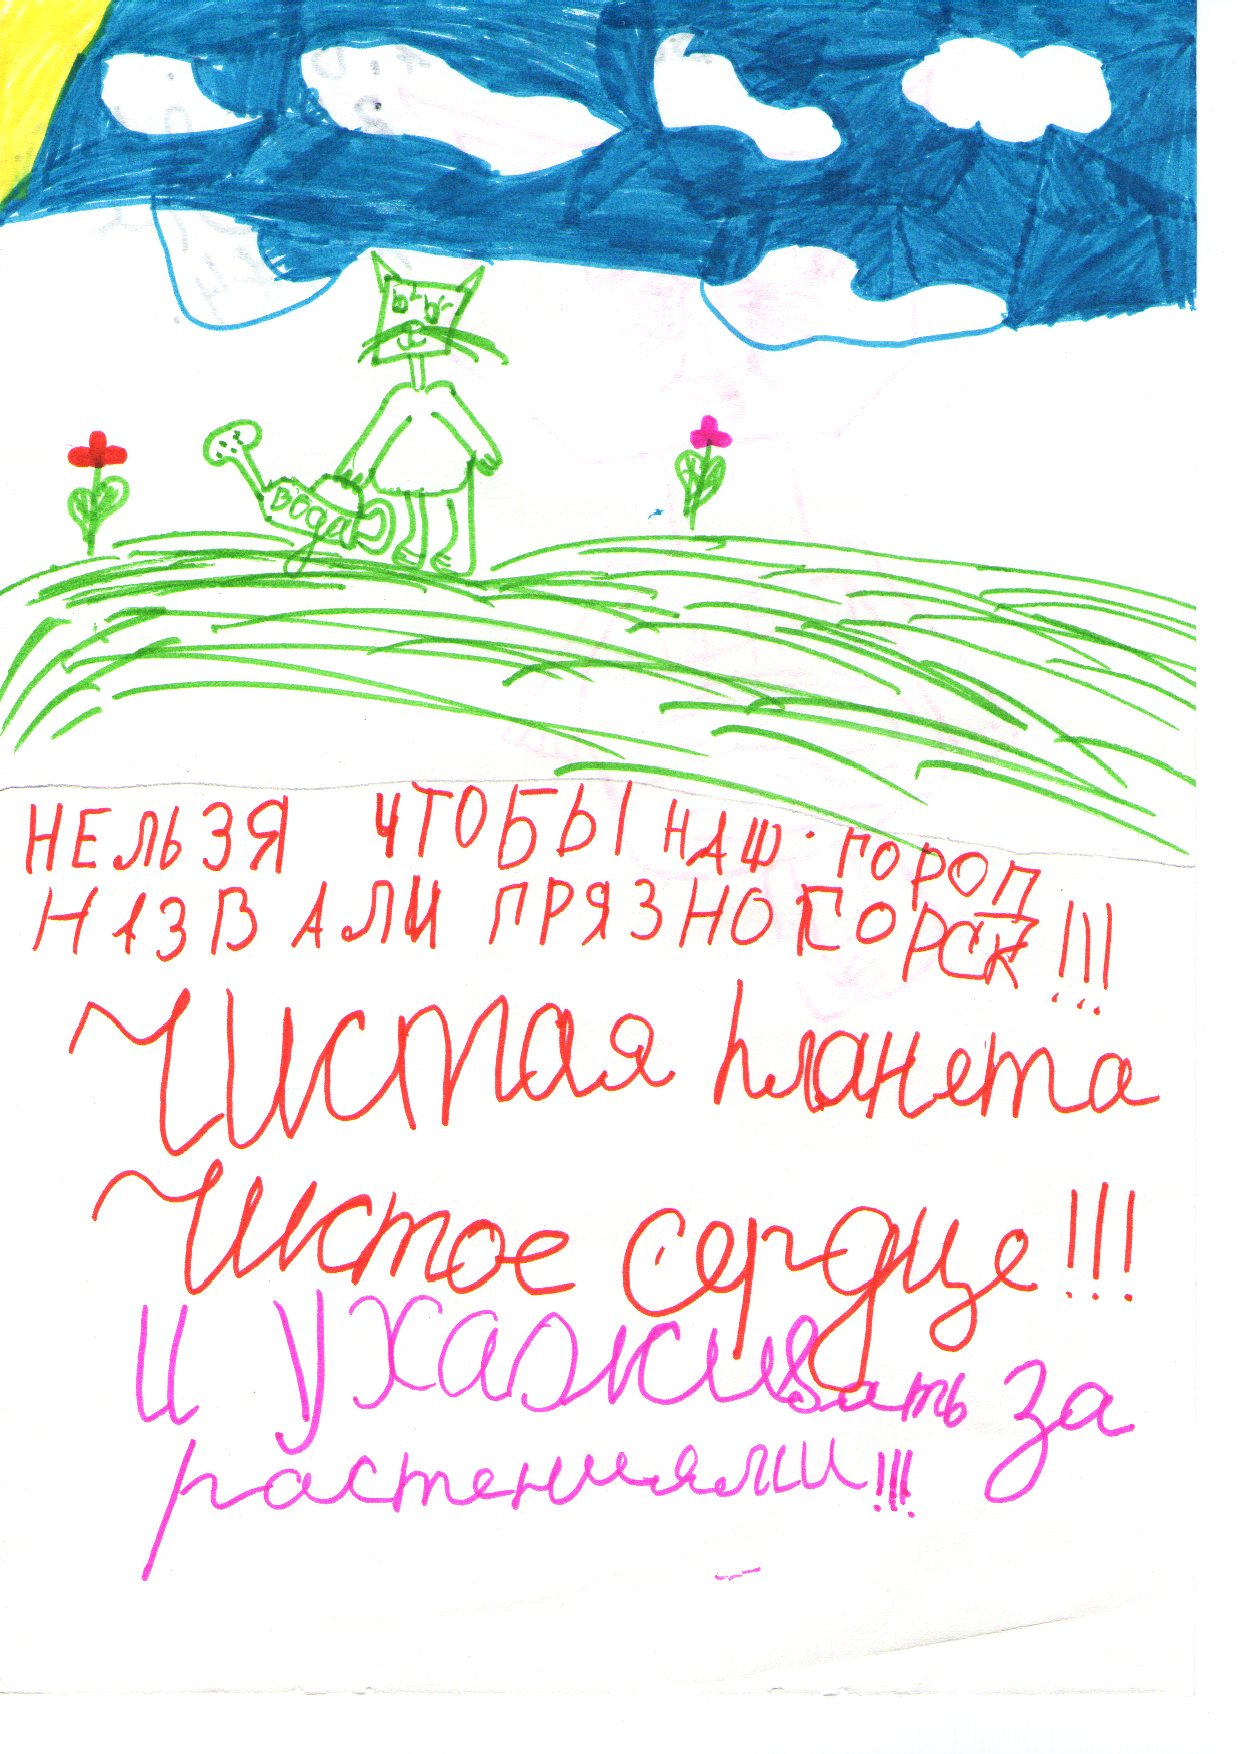 вода
НЕЛЬЗЯ ЧТОБЫ НАШ ГОРОД
НАЗВАЛИ ГРЯЗНОГОРСК!!!
Чистая планета
Чистое сердце!!!
И ухаживать за
растениями!!!